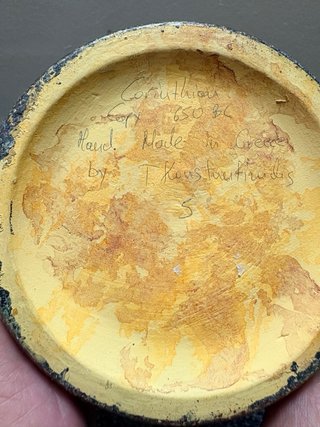 Corinthian
Copy 650 BC
Hand Made in Greece
by T Konstantinidis
5